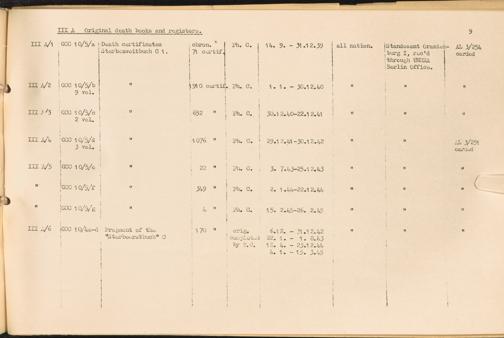 III A Original death books and registers.
9
III A/1 GCC 10/5/a Death certificates chron. Ph. C. 14. 9. - 31.12.39 all nation. Standesamt Oranien- AL 3/254
Sterbezweitbuch C 1. 71 certif. burg I, rec'd carded
through UNRRA
Berlin Office.
III A/2 GCC 10/5/b " 1310 certif. Ph. C. 1. 1. - 30.12.40 " " "
9 vol.
III A/3 GCC 10/5/c " 692 " Ph. C. 30.12.40-22.12.41 " " "
2 vol.
III A/4 GCC 10/5/d " 1076 " Ph. C. 29.12.41-30.12.42 " " AL 3/254
3 vol. carded
III A/5 GCC 10/5/e " 20 " Ph. C. 3. 7.43-25.12.43 " " "
" GCC 10/5/f " 349 " Ph. C. 2. 1.44-22.12.44 " " "
" GCC 10/5/g " 4 " Ph. C. 15. 2.45-26. 2.45 " " "
III A/6 Fragment of the 170 " orig. 6.12. - 31.12.42 " " "
"Sterbezweitbuch" C completed 22. 1. - 1. 8.43
by 12. 4. - 23.12.44
4. 1. - 15. 3.45